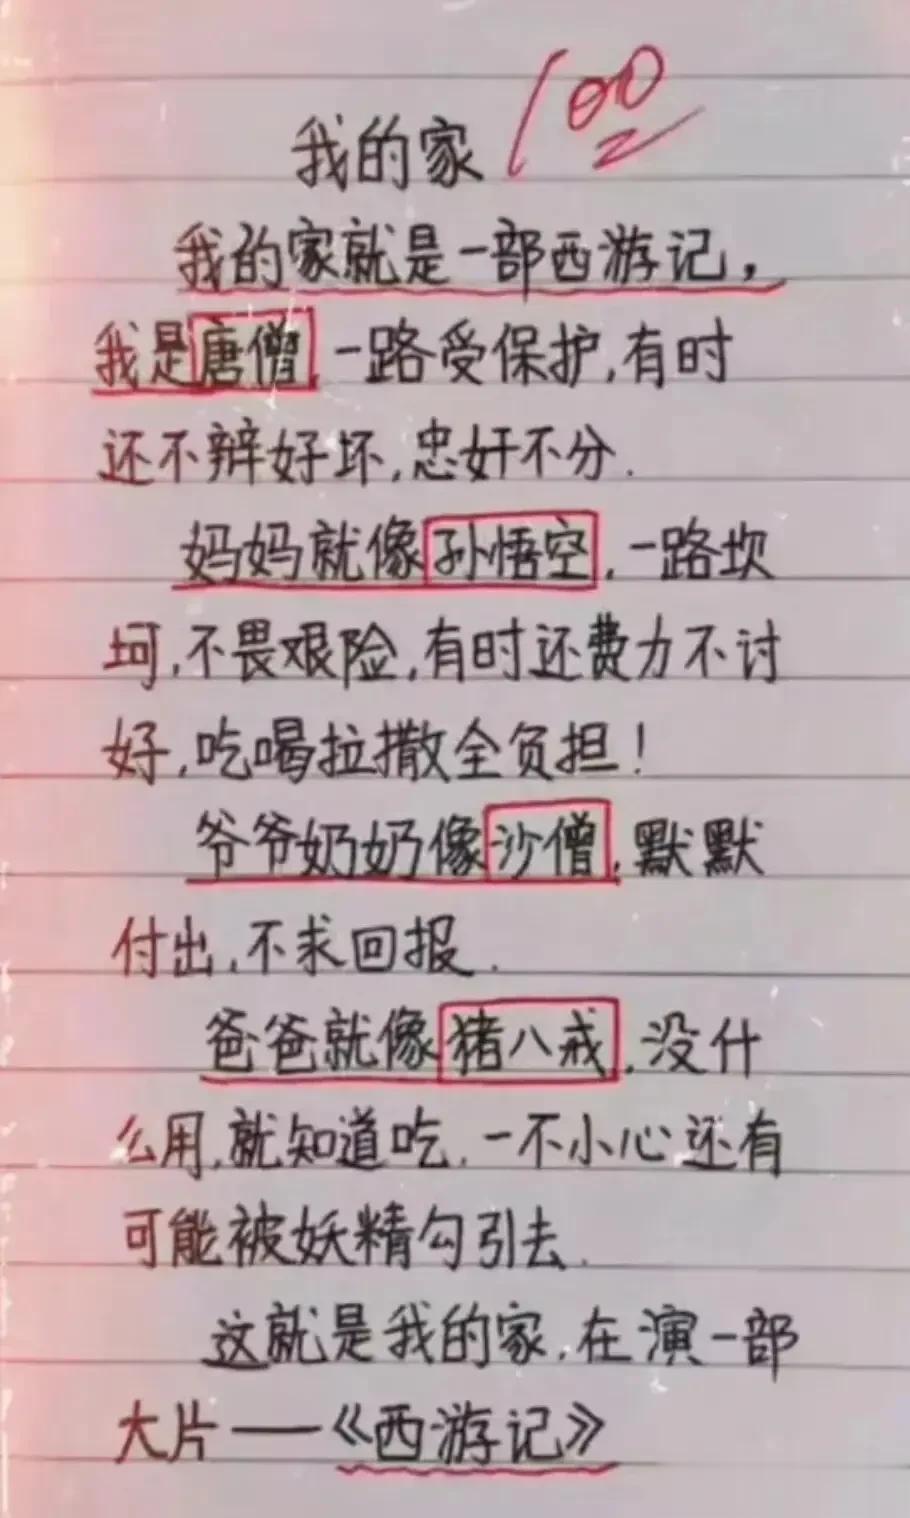 我的家 100
我的家就是一部西游记，
我是唐僧,一路受保护,有时
还不辩好坏,忠奸不分.
妈妈就像孙悟空,一路坎
坷,不畏艰险,有时还费力不讨
好,吃喝拉撒全负担！
爷爷奶奶像沙僧,默默
付出,不求回报.
爸爸就像猪八戒,没什
么用,就知道吃,一不小心还有
可能被妖精勾引去.
这就是我的家,在演一部
大片——《西游记》